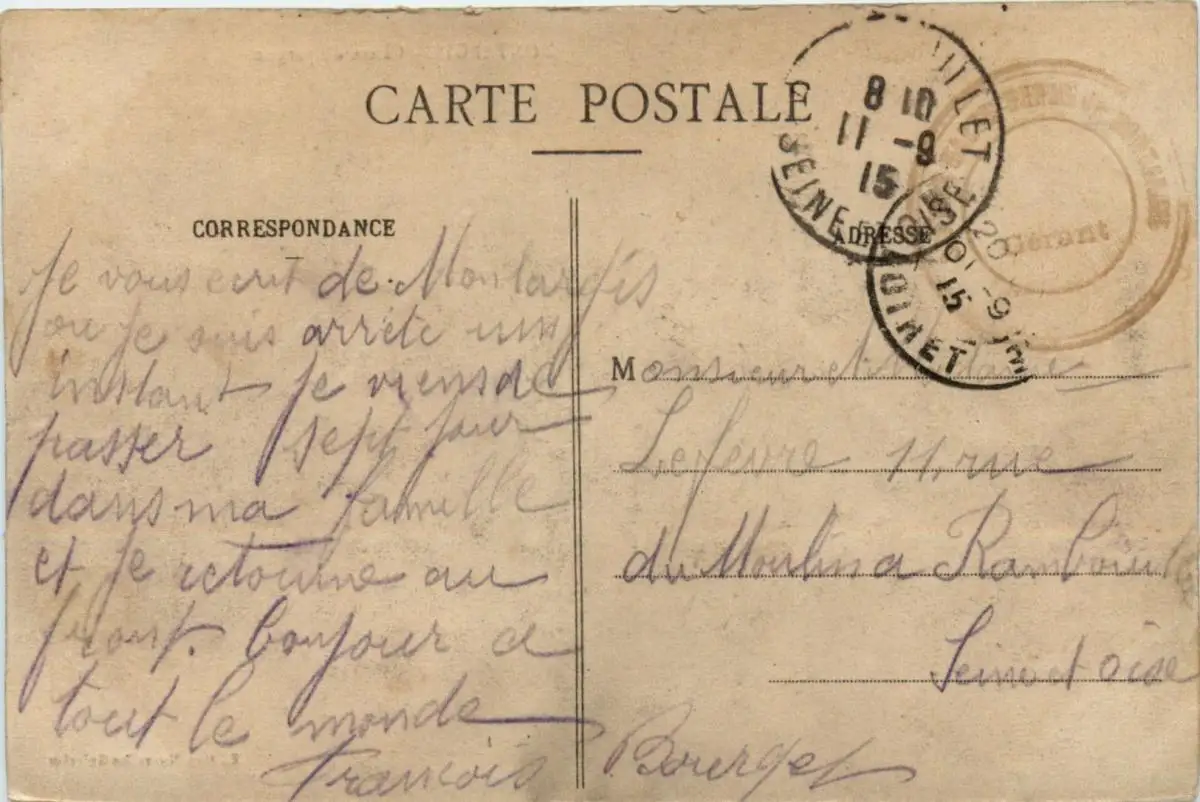 CARTE POSTALE
CORRESPONDANCE
Je vous ecrit de Montargis
ou je suis arrété un
instant je viens de
passer sept jour
dans ma famille
et je retourne au
front. bonjour a
tout le monde
Francois Bourget
ADRESSE
Monsieur et Madame
Lefevre 11, rue
du Moulin a Rambouillet
Seine et oise
8 10
11 -9
15
SEINE
OISE
20
10 -9
15
Gérant